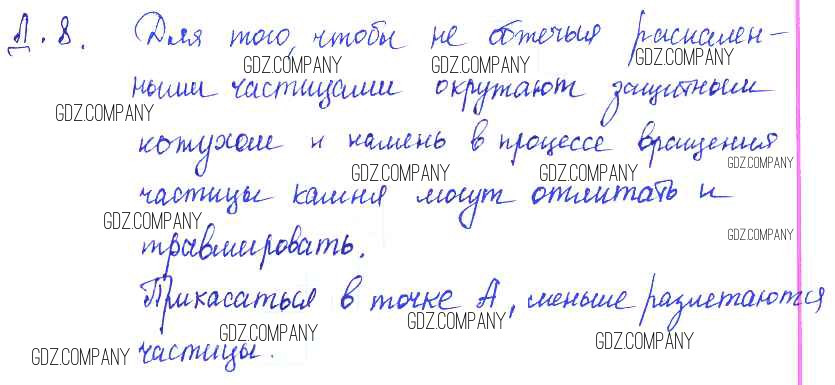 Д. 8. Для того, чтобы не обжечься раскален-
GDZ.COMPANY GDZ.COMPANY GDZ.COMPANY
ными частицами окружают защитным
GDZ.COMPANY
кожухом и камень в процессе вращения
GDZ.COMPANY GDZ.COMPANY GDZ.COMPANY
частицы камня могут отлитать и
GDZ.COMPANY
травмировать.
GDZ.COMPANY
Прикасаться в точке А, меньше разлетаются
GDZ.COMPANY GDZ.COMPANY
GDZ.COMPANY частицы. GDZ.COMPANY